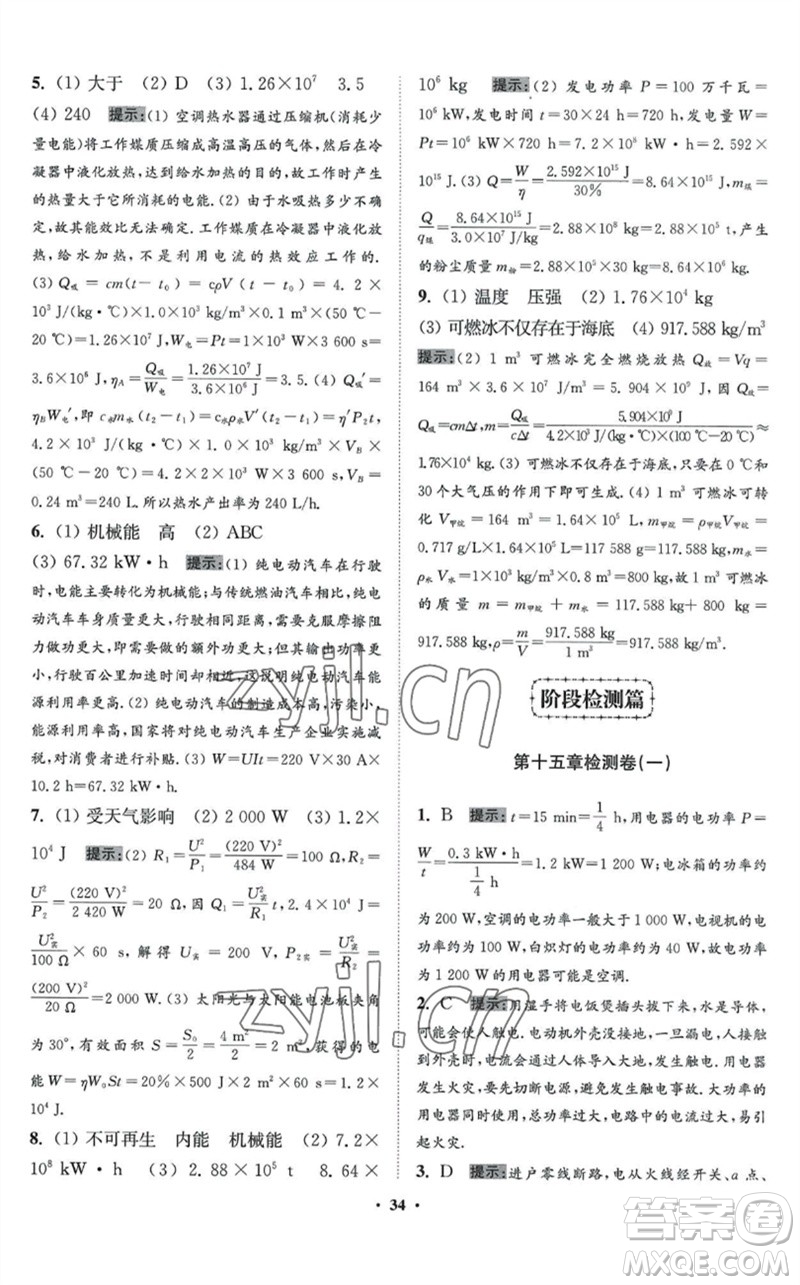 5. (1) 大于 (2) D (3) 1.26×10⁷ 3.5
(4) 240 提示:(1) 空调热水器通过压缩机(消耗少
量电能)将工作媒质压缩成高温高压的气体,然后在冷
凝器中液化放热,达到给水加热的目的,在工作时产生
的热量大于它所消耗的电能.(2) 由于水吸热多少不确
定,其能效比无法确定.工作媒质在冷凝器中液化放
热,给水加热,不是利用电流的热效应工作的.
(3) Q吸 = cm(t − t₀) = cρV (t − t₀) = 4.2 ×
10³ J/(kg·℃)×1.0×10³ kg/m³×0.1 m³×(50 ℃−
20 ℃)=1.26×10⁷ J,W电=Pt=1×10³ W×3 600 s=
3.6×10⁶ J,ηA=Q吸/W电=1.26×10⁷ J/3.6×10⁶ J=3.5.(4) Q吸′=
ηBW电′,即 c水m水(t₂−t₁)=c水ρ水V′(t₂−t₁)=η′P₂t,
4.2×10³ J/(kg·℃)×1.0×10³ kg/m³×VB×
(50 ℃−20 ℃)=4.2×2×10³ W×3 600 s,VB=
0.24 m³=240 L.所以热水产出率为240 L/h.
6. (1) 机械能 高 (2) ABC
(3) 67.32 kW·h 提示:(1) 纯电动汽车在行驶
时,电能主要转化为机械能;与传统燃油汽车相比,纯
电动汽车车身质量更大,行驶相同距离,需要克服摩擦
阻力做功更大,即需要做的额外功更大;但其输出功率
更小,行驶百公里加速时间却相近,这说明纯电动汽车
能源利用率更高.(2) 纯电动汽车的制造成本高,污染小,
能源利用率更高,国家将对纯电动汽车生产企业实行减税,
对消费者进行补贴.(3) W=UIt=220 V×15 A×20.4 h=
67.32 kW·h.
7. (1) 受天气影响 (2) 2 000 W (3) 1.2×
10⁴ J 提示:(2) R₁=U²/P₁=(220 V)²/484 W=100 Ω,R₂=
U²/P₂=(220 V)²/2 420 W=20 Ω,因 Q₁=U实²/R₁t,则 1.2×10⁴ J=
U实²/100 Ω×60 s,解得 U实=200 V,P₂实=U实²/R₂=
(200 V)²/20 Ω=2 000 W.(3) 太阳光与太阳能电池板夹角
为30°,有效面积 S=S₀/2=4 m²/2=2 m²,获得的电
能=ηW₀St=20%×500 J×2 m²×60 s=1.2×
10⁴ J.
8. (1) 不可再生 内能 机械能 (2) 7.2×
10⁸ kW·h (3) 2.88×10⁵ t 8.64×
10⁶ kg 提示:(2) 发电功率 P=100 万千瓦=
10⁶ kW,发电时间 t=30×24 h=720 h,发电量 W=
Pt=10⁶ kW×720 h=7.2×10⁸ kW·h=2.592×
10¹⁵ J.(3) Q=W/η=2.592×10¹⁵ J/30%=8.64×10¹⁵ J,m煤=
Q/q煤=8.64×10¹⁵ J/3.0×10⁷ J/kg=2.88×10⁸ kg=2.88×10⁵ t,产生
的粉尘质量 m粉=2.88×10⁸ kg×3%=8.64×10⁶ kg.
9. (1) 温度 压强 (2) 1.76×10⁴ kg
(3) 可燃冰不仅存在于海底 (4) 917.588 kg/m³
提示:(2) 1 m³ 可燃冰完全燃烧放热 Q放=Vq=
164 m³×3.6×10⁷ J/m³=5.904×10⁹ J,
Q吸=cmΔt,m=Q吸/cΔt=5.904×10⁹ J/4.2×10³ J/(kg·℃)×(100 ℃−20 ℃)≈
1.76×10⁴ kg.(3) 可燃冰不仅存在于海底,只要在0 ℃和
30个大气压的作用下即可生成.(4) 1 m³ 可燃冰可转
化 V甲烷=164 m³=1.64×10⁵ L,m甲烷=ρ甲烷V甲烷=
0.717 g/L×1.64×10⁵ L=117.588 kg,m水=
ρ水V水=1×10³ kg/m³×0.8 m³=800 kg,故可燃冰
的质量 m=m甲烷+m水=117.588 kg+800 kg=
917.588 kg,ρ=m/V=917.588 kg/1 m³=917.588 kg/m³.
阶段检测篇
第十五章检测卷(一)
1. B 提示:t=15 min=1/4 h,用电器的电功率 P=
W/t=0.3 kW·h/(1/4 h)=1.2 kW=1 200 W;电冰箱的功率约
为200 W,空调的电功率一般大于1 000 W,电视机的功
率约为100 W,白炽灯的功率约为40 W,故电功率
为1 200 W的用电器可能是空调.
2. C 提示:用湿手将电饭煲插头拔下来,水是导体,
可能使人触电.电动机外壳没接地,一旦漏电,人接触
到外壳时,电流会通过人体,发生触电事故.发生触电或
发生火灾,首先要切断电源,避免发生触电事故.大功率
的用电器同时使用,总功率过大,电路中的电流过大,易引
起火灾.
3. D 提示:进户零线断路,电从火线经开关、a点、
· 34 ·
zyjl.cn
zyjl.cn
答案圈
MXQE.COM